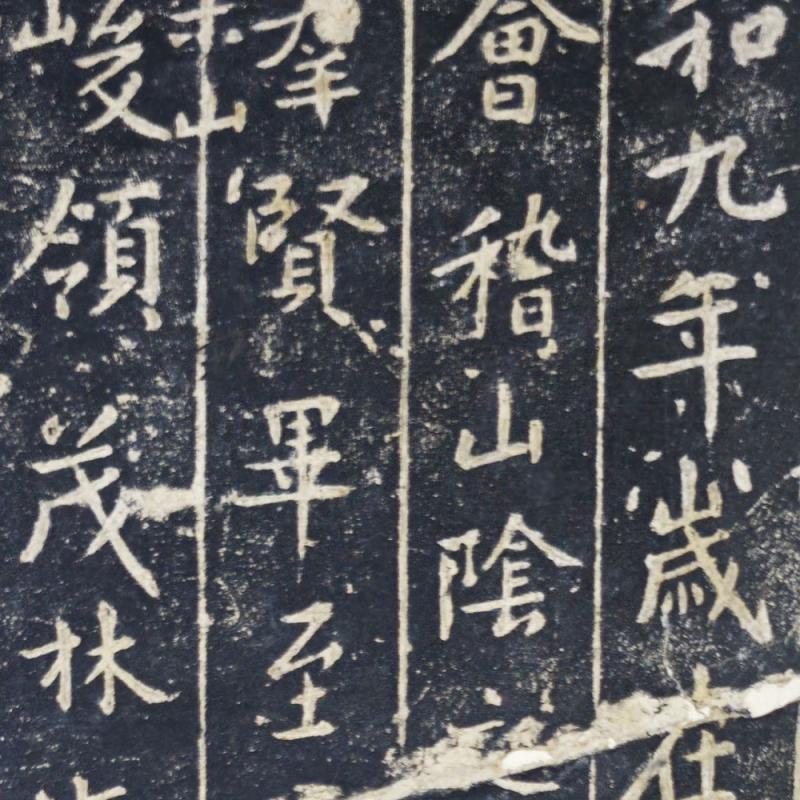 和九年歲在
會稽山陰之
羣賢畢至
峻領茂林